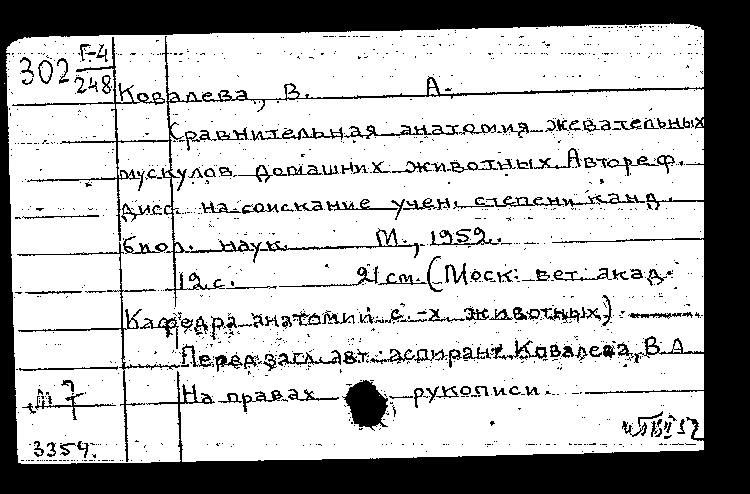 302 Г-4
248
Ковалева, В. А.
Сравнительная анатомия жевательных
мускулов домашних животных. Автореф.
дисс. на соискание учен. степени канд.
биол. наук. М., 1952.
12 с. 21 см. (Моск. вет. акад.
Кафедра анатомии с.-х. животных).
Перед загл. авт.: аспирант Ковалева, В. А.
На правах рукописи.
м 7
3354.